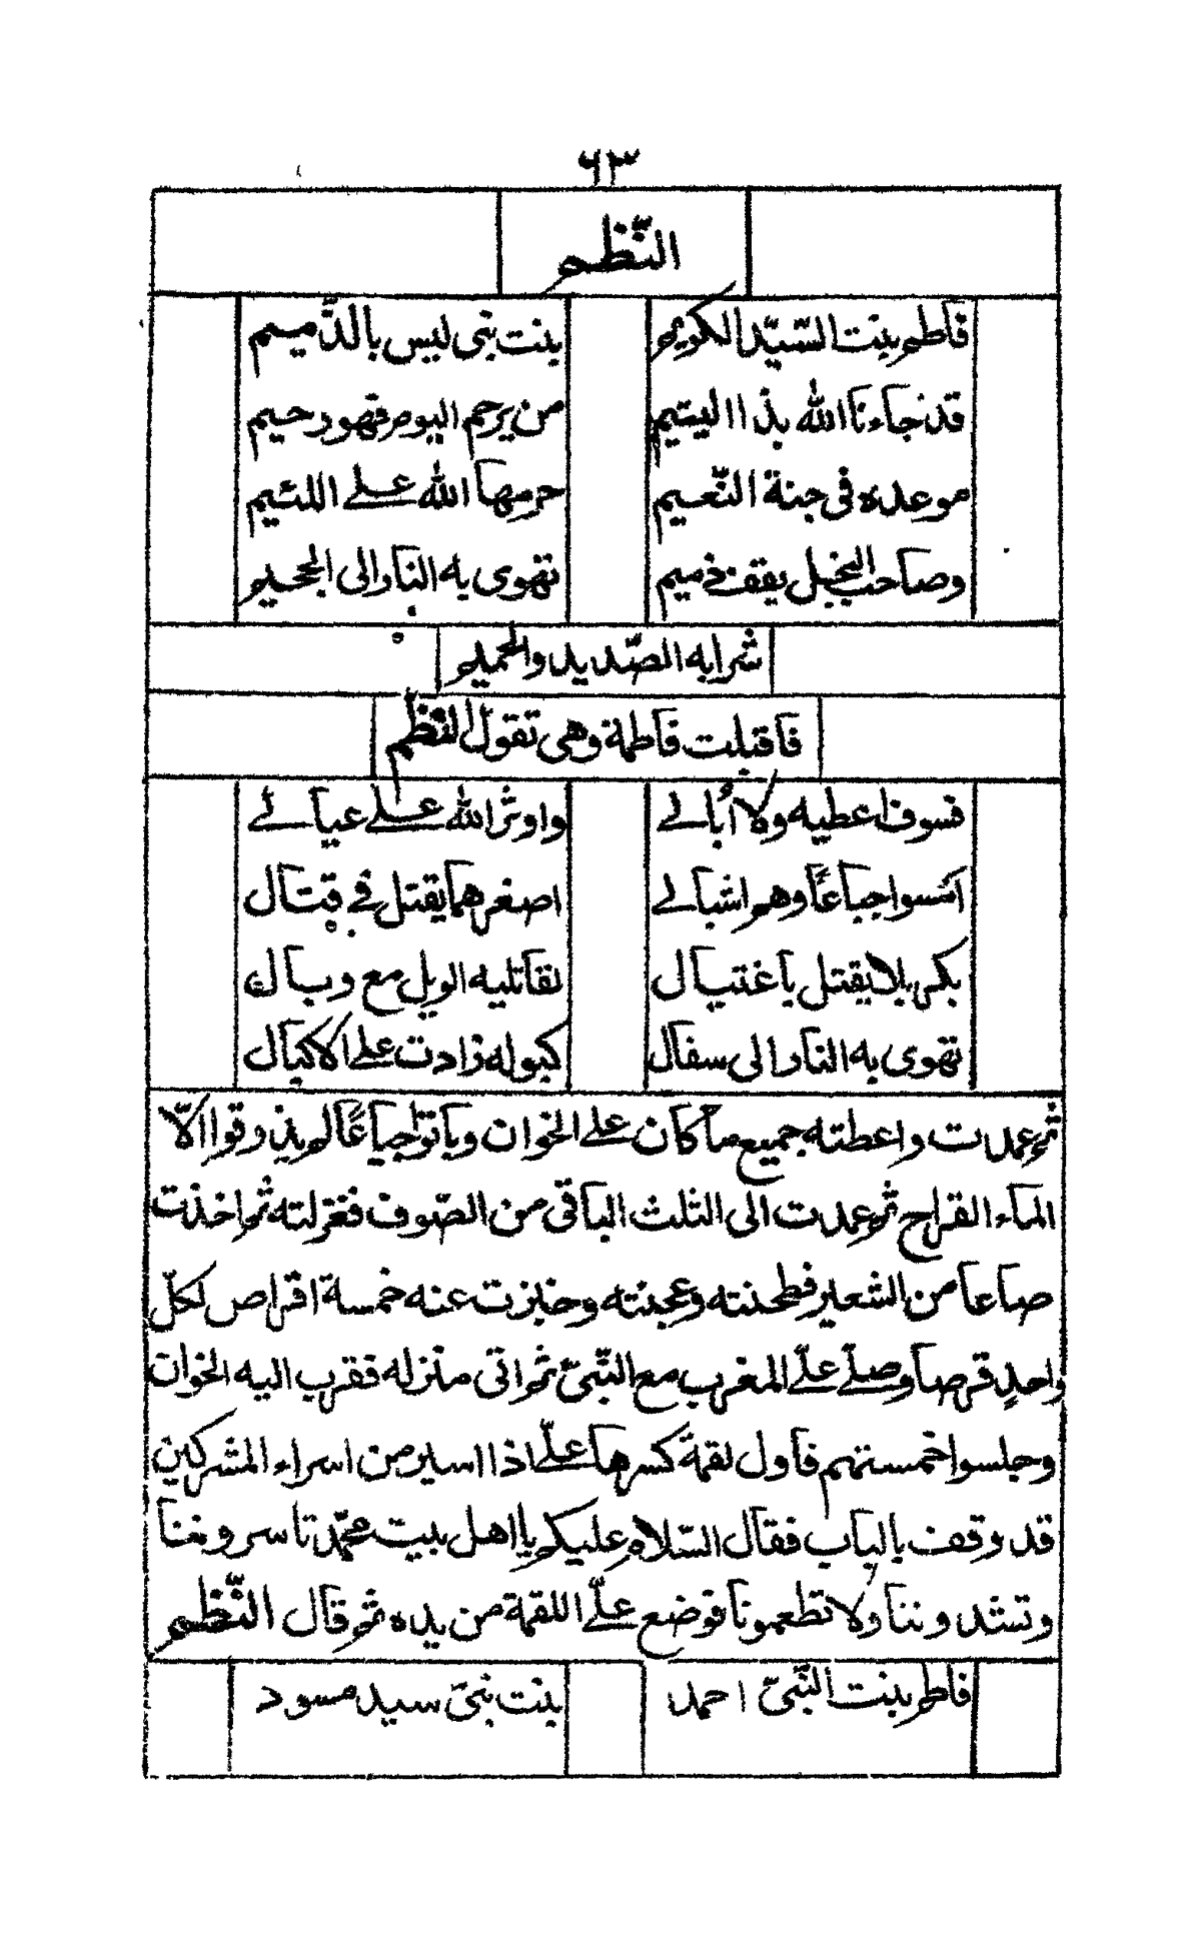 ٦٣
النّظم
فاطم بنت السّيّد الكريم بنت نبى ليس بالذّميم
قد جاءنا الله بذا اليتيم من يرحم اليوم فهو رحيم
موعده فى جنة النّعيم حرمها الله على اللئيم
وصاحب البخل يقف ذميم تهوى به النار الى الجحيم
شرابه الصّديد والحميم
فاقبلت فاطمة وهى تقول النّظم
فسوف اعطيه ولا اُبالى واوثر الله على عيالى
امسوا جياعًا وهم اشبالى اصغرهما يقتل فى قتال
بكربلا يقتل باغتيال لقاتليه الويل مع وبال
تهوى به النار الى سفال كبوله زادت على الاكبال
ثم عمدت واعطته جميع ما كان على الخوان وباتوا جياعًا لم يذوقوا الّا
الماء القراح ثم عمدت الى الثلث الباقى من الصّوف فغزلته ثم اخذت
صاعا من الشعير فطحنته وعجنته وخبزت عنه خمسة اقراص لكلّ
واحدٍ قرصا وصلّى علىّ المغرب مع النّبىّ ثم اتى منزله فقرب اليه الخوان
وجلسوا خمستهم فاول لقمة كسرها علىّ اذا اسير من اسراء المشركين
قد وقف بالباب فقال السّلام عليكم يا اهل بيت محمّد تاسروننا
وتشدوننا ولا تطعمونا فوضع علىّ اللقمة من يده ثم قال النّظم
فاطم بنت النّبىّ احمد بنت نبىّ سيد مسود